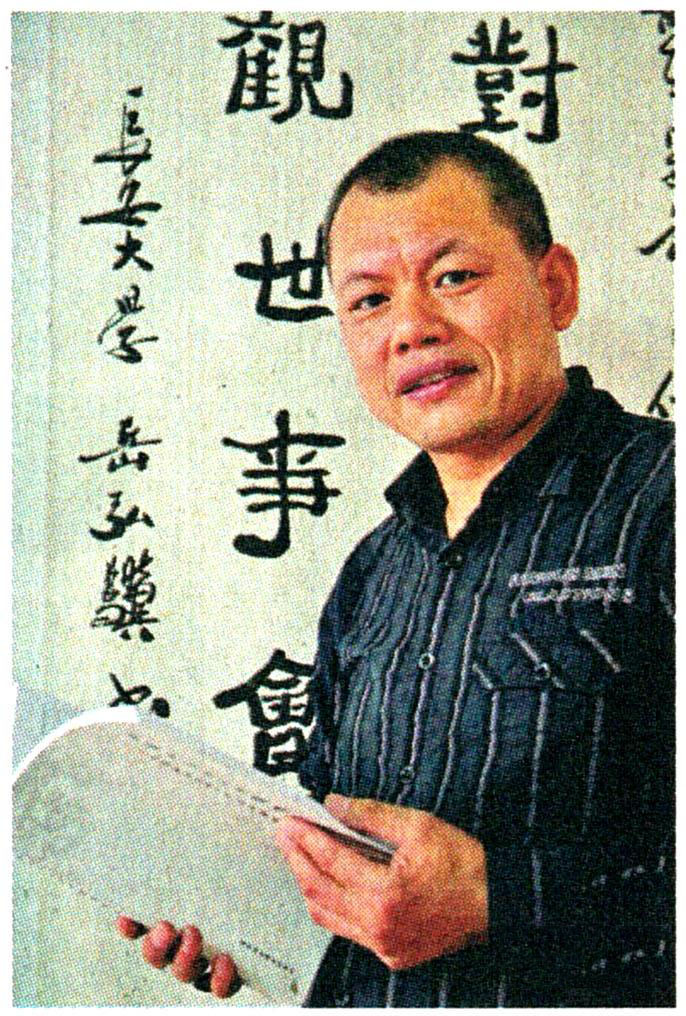 對
觀世事會
長安大學 岳弘驥 书